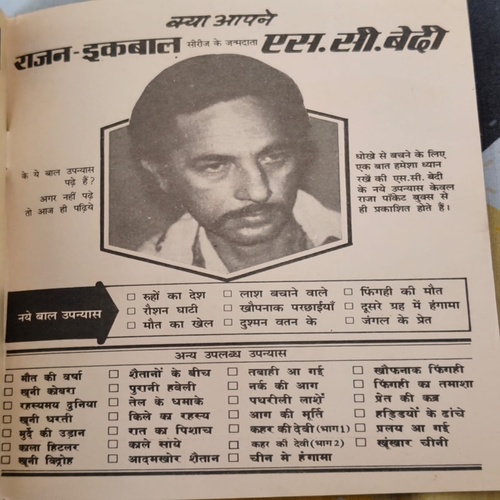 क्या आपने
राजन-इकबाल सीरीज के जन्मदाता एस.सी.बेदी
के ये बाल उपन्यास
पढ़े हैं?
अगर नहीं पढ़े
तो आज ही पढ़िये
धोखे से बचने के लिए
एक बात हमेशा ध्यान
रखें की एस.सी. बेदी
के नये उपन्यास केवल
राजा पॉकेट बुक्स से
ही प्रकाशित होते हैं।
नये बाल उपन्यास
रुहों का देश
लाश बचाने वाले
फिंगही की मौत
रौशन घाटी
खौपनाक परछाईयाँ
दूसरे ग्रह में हंगामा
मौत का खेल
दुश्मन वतन के
जंगल के प्रेत
अन्य उपलब्ध उपन्यास
मौत की वर्षा
खूनी कोबरा
रहस्यमय दुनिया
खूनी धरती
मुर्दे की उड़ान
काला हिटलर
खूनी विद्रोह
शैतानों के बीच
पुरानी हवेली
तेल के धमाके
किले का रहस्य
रात का पिशाच
काले साये
आदमखोर शैतान
तबाही आ गई
नर्क की आग
पथरीली लाशें
आग की मूर्ति
कहर की देवी (भाग1)
कहर की देवी (भाग२)
चीन मे हंगामा
खौफनाक फिंगही
फिंगही का तमाशा
प्रेत की कब्र
हड्डियों के ढांचे
प्रलय आ गई
खूंखार चीनी